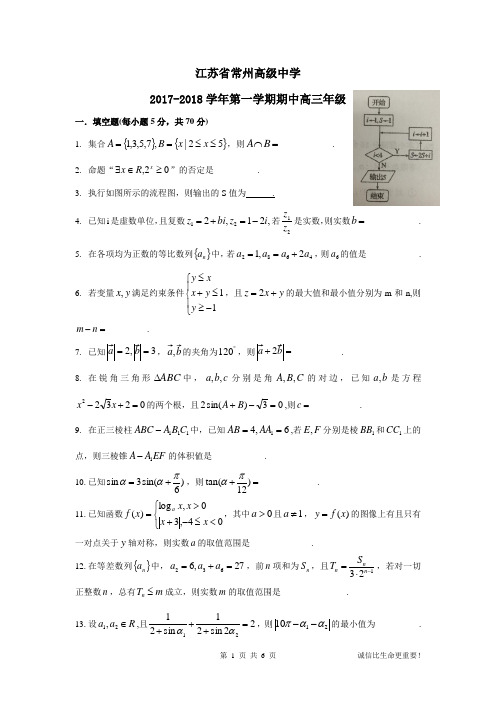 江苏省常州高级中学
2017-2018学年第一学期期中高三年级
一．填空题(每小题5分，共70分)
1. 集合A={1,3,5,7},B={x|2≤x≤5}，则A∩B=__________.
2. 命题“∃x∈R,2^x≥0”的否定是__________.
3. 执行如图所示的流程图，则输出的S值为______.
开始
i←1,S←1
i←i+1
i<4
Y
S←2S+i
N
输出S
结束
4. 已知i是虚数单位,且复数z₁=2+bi,z₂=1-2i,若z₁/z₂是实数,则实数b=__________.
5. 在各项均为正数的等比数列{aₙ}中，若a₂=1,a₈=a₆+2a₄，则a₆的值是__________.
6. 若变量x,y满足约束条件{y≤x x+y≤1 y≥-1，且z=2x+y的最大值和最小值分别为m和n,则
m-n=__________.
7. 已知|a|=2,|b|=3，a,b的夹角为120°，则|a+2b|=__________.
8. 在锐角三角形∆ABC中，a,b,c分别是角A,B,C的对边，已知a,b是方程
x²-2√3x+2=0的两个根，且2sin(A+B)-√3=0,则c=__________.
9. 在正三棱柱ABC-A₁B₁C₁中，已知AB=4,AA₁=6,若E,F分别是棱BB₁和CC₁上的
点，则三棱锥A-A₁EF的体积是__________.
10. 已知sinα=3sin(α+π/6)，则tan(α+π/12)=__________.
11. 已知函数f(x)={logₐx,x>0 |x+3|,-4≤x<0，其中a>0且a≠1，y=f(x)的图像上有且只有
一对点关于y轴对称，则实数a的取值范围是__________.
12. 在等差数列{aₙ}中，a₂=6,a₃+a₆=27，前n项和为Sₙ，且Tₙ=Sₙ/(3·2ⁿ⁻¹)，若对一切
正整数n，总有Tₙ≤m成立，则实数m的取值范围是__________.
13. 设a₁,a₂∈R,且1/(2+sinα₁)+1/(2+sin2α₂)=2，则|10π-α₁-α₂|的最小值为__________.
第 1 页 共 6 页
诚信比生命更重要！